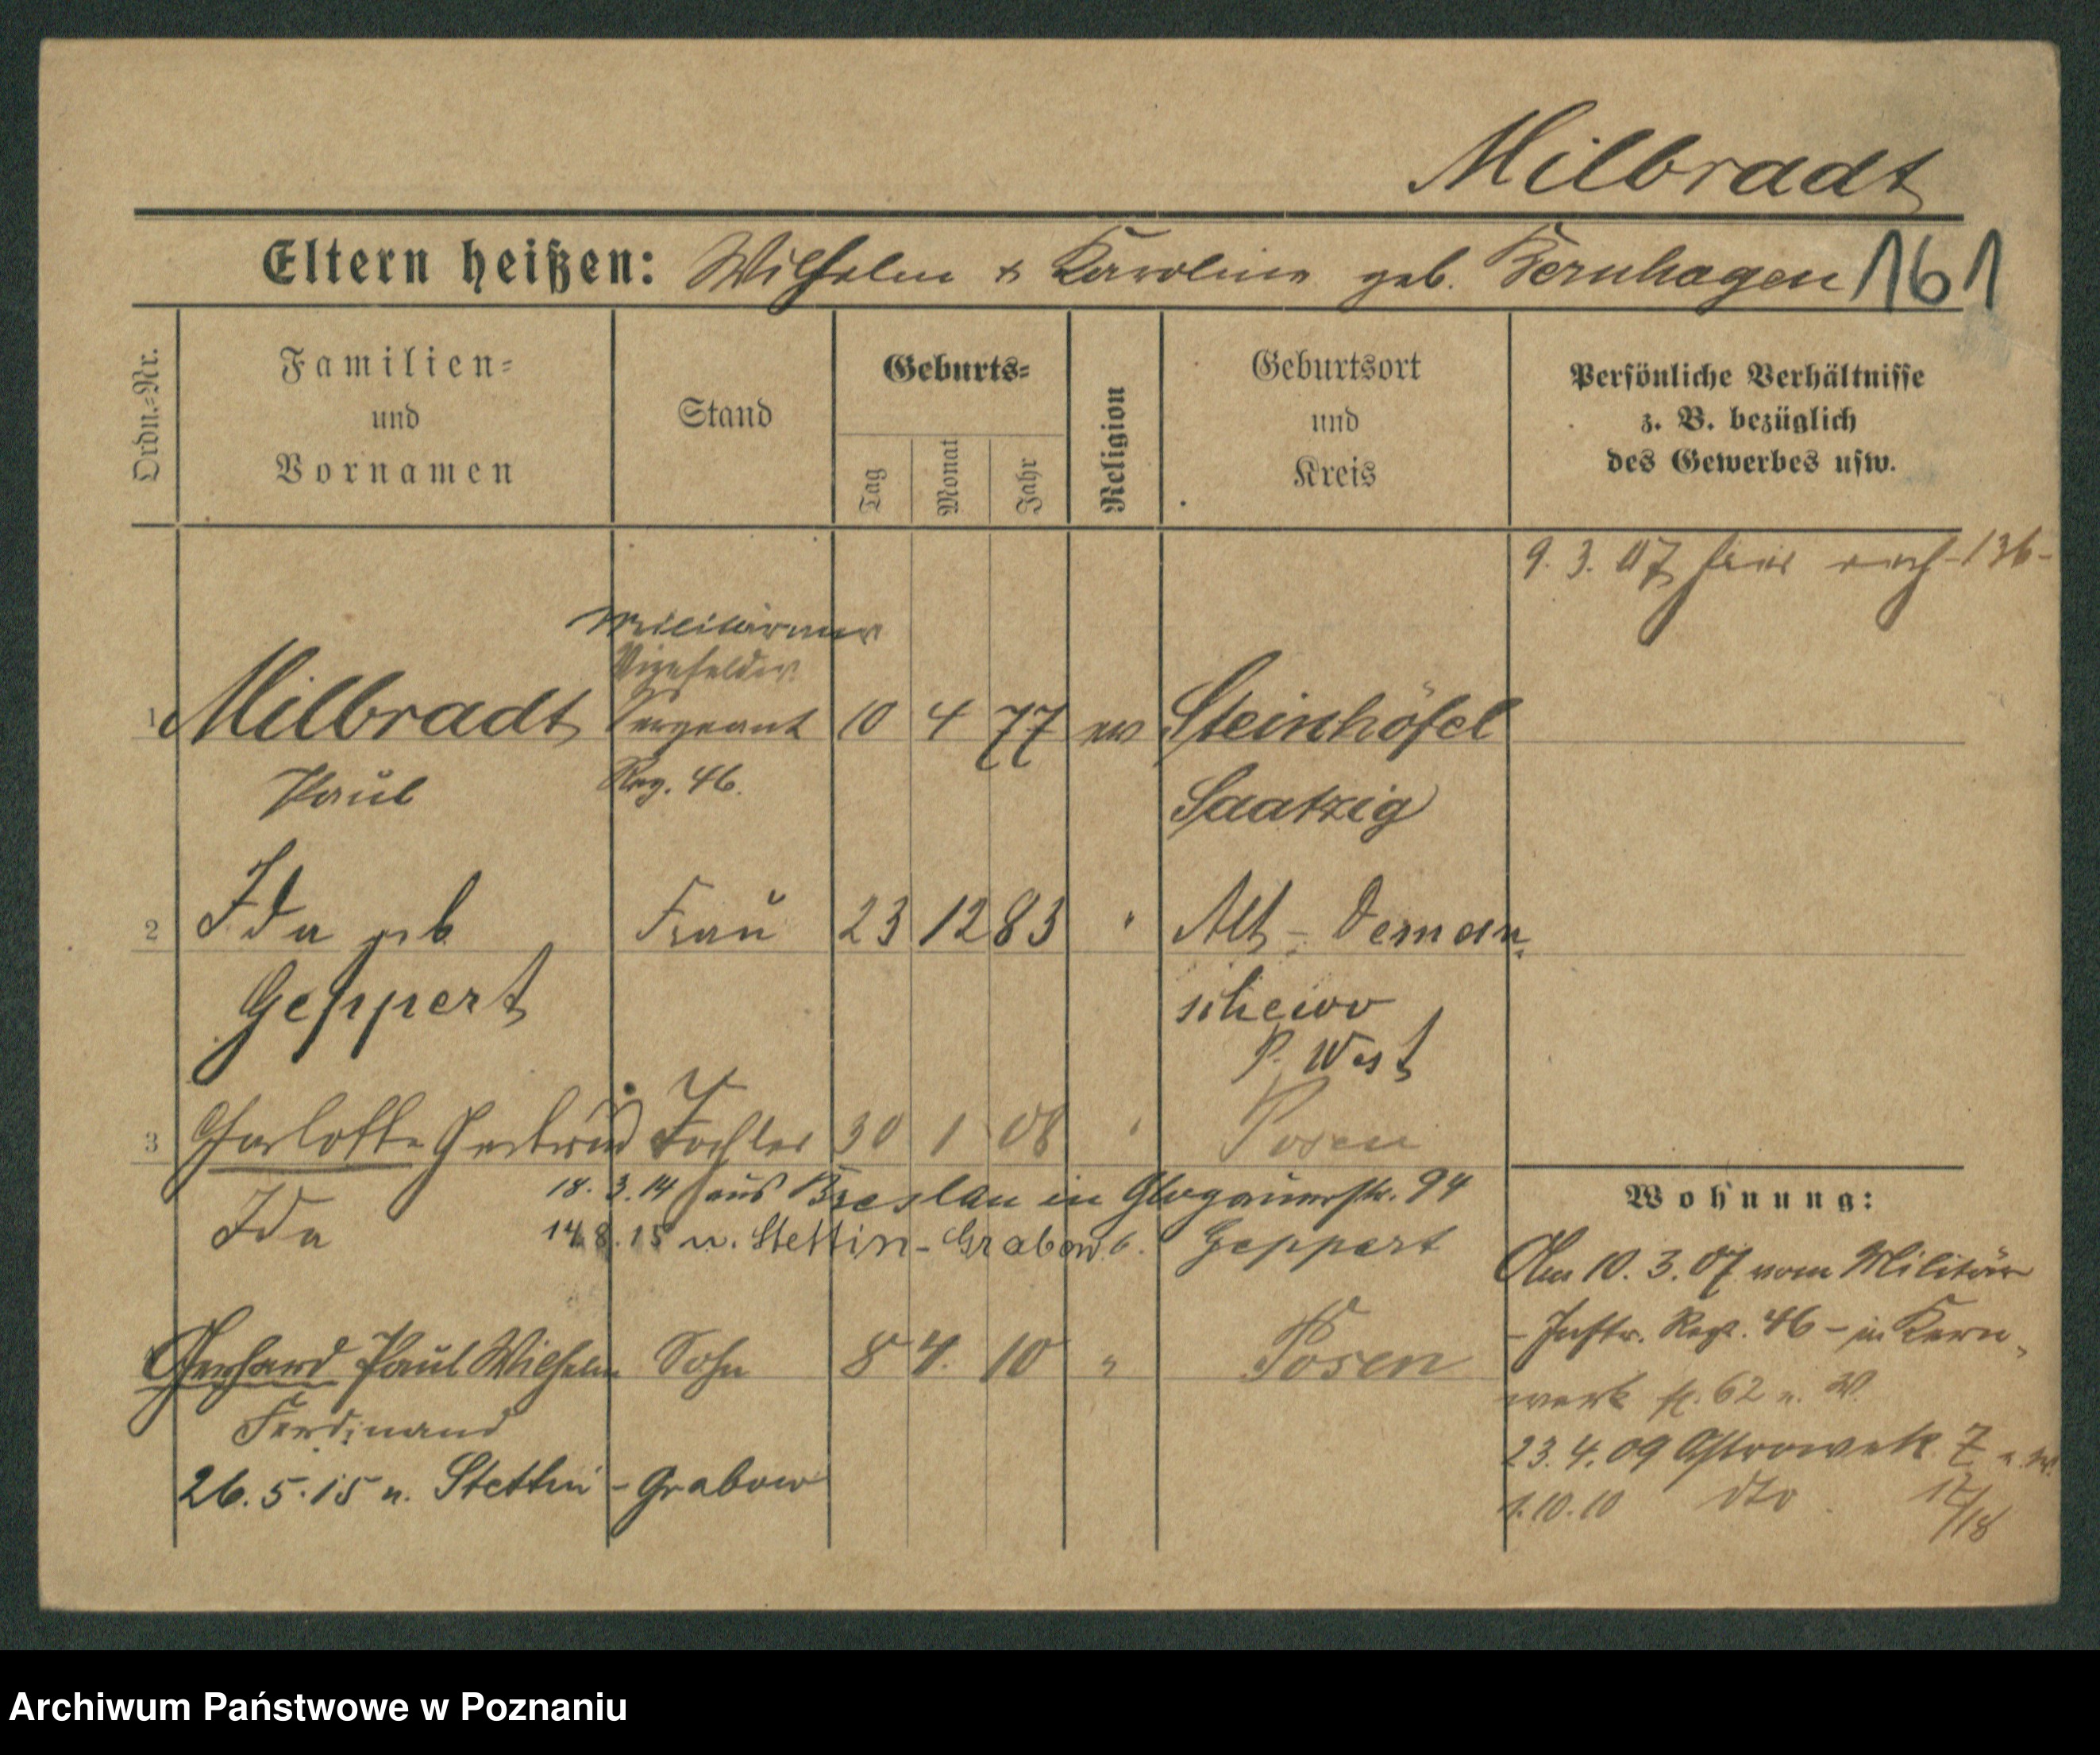 Milbradt
Eltern heißen: Wilhelm & Karoline geb. Bernhagen 161
Ordn.-Nr.
Familien-
und
Vornamen
Stand
Geburts-
Tag
Monat
Jahr
Religion
Geburtsort
und
Kreis
Persönliche Verhältnisse
z. B. bezüglich
des Gewerbes usw.
9. 3. 07 136-
Militäranw
Vizefeldw.
1 Milbradt Sergeant 10 4 77 ev Steinhöfel
Paul Reg. 46. Saatzig
2 Ida geb Frau 23 12 83 " Alt-Deman-
Geppert schewo
P. West
3 Charlotte Gertrud Tochter 30 1 08 " Posen
Ida 18. 3. 14 aus Breslau in Glogauerstr. 94
14. 8. 15 n. Stettin-Grabow b. Geppert
Gerhard Paul Wilhelm Sohn 8 4. 10 " Posen
Ferdinand
26. 5. 15 n. Stettin - Grabow
Wohnung:
Am 10. 3. 07 vom Militär
- Inftr. Reg. 46 - in Kern-
werk 62
23. 4. 09 Ostrowek 7
1. 10. 10 dto 17/18
Archiwum Państwowe w Poznaniu